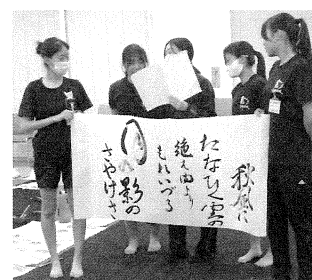 秋風に
たなびく雲の
絶え間より
もれいづる
月の影の
さやけさ